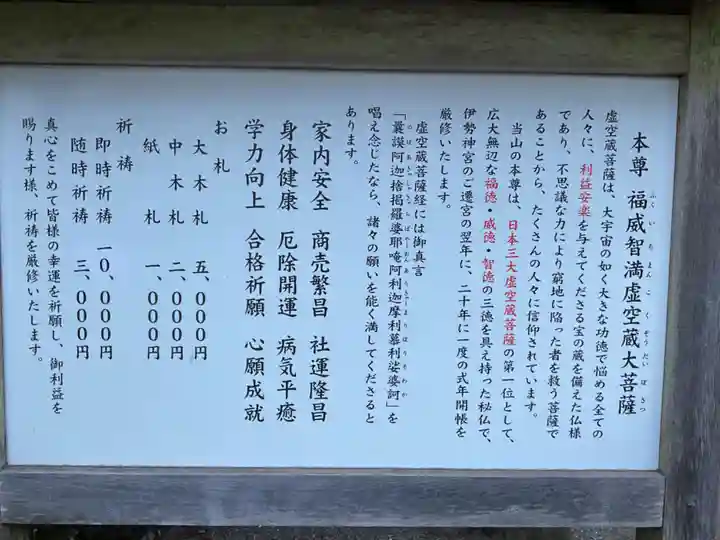 本尊 福威智満虚空蔵大菩薩
ふくいちまんこくぞうだいぼさつ
虚空蔵菩薩は、大宇宙の如く大きな功徳で悩める全ての
人々に、利益安楽を与えてくださる宝の蔵を備えた仏様
であり、不思議な力により窮地に陥った者を救う菩薩で
あることから、たくさんの人々に信仰されています。
当山の本尊は、日本三大虚空蔵菩薩の第一位として、
広大無辺な福徳・威徳・智徳の三徳を具え持った秘仏で、
伊勢神宮のご遷宮の翌年に、二十年に一度の式年開帳を
厳修いたします。
虚空蔵菩薩経には御真言
「曩謨阿迦捨掲羅婆耶唵阿利迦摩利慕利娑婆訶」を
唱え念じたなら、諸々の願いを能く満してくださると
あります。
家内安全 商売繁昌 社運隆昌
身体健康 厄除開運 病気平癒
学力向上 合格祈願 心願成就
お札
大木札 五、〇〇〇円
中木札 二、〇〇〇円
紙札 一、〇〇〇円
祈祷
即時祈祷 一〇、〇〇〇円
随時祈祷 三、〇〇〇円
真心をこめて皆様の幸運を祈願し、御利益を
賜ります様、祈祷を厳修いたします。